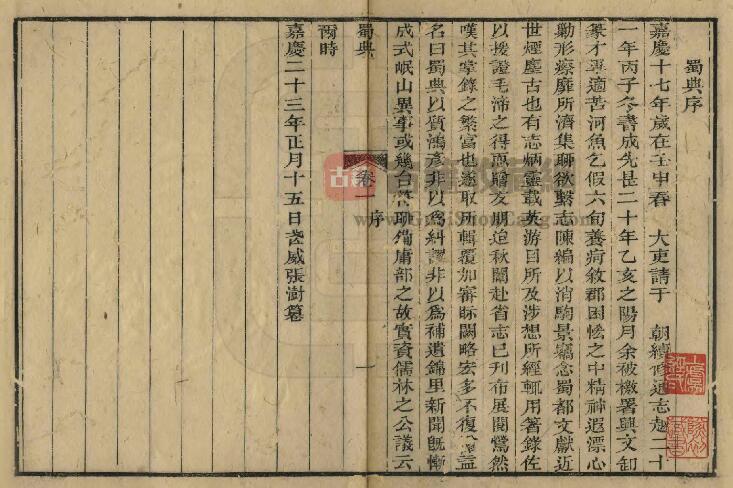 蜀典序
嘉慶十七年歲在壬申春　大吏請于　朝續修通志越二十
一年丙子冬書成先是二十年乙亥之陽月余被檄署興文卸
篆才再適苦河魚乞假六旬養疴敘郡困惫之中精神遐漂心
勤形瘵靡所濟集聊欲繫志陳編以消駒景竊念蜀都文獻近
世煙塵古也有志炳靈載英游目所及涉想所經輒用箸錄佐
以援證毛沛之得而贍友朋迫秋闈赴省志已刊布展閱鶯然
嘆其掌錄之繁富也遂取所輯覆加審眎闕略宏多不復
名曰蜀典以質鴻彥非以為糾謬非以為補遺錦里新聞旣慚
成式岷山異事或幾台符聊備庸部之故實資儒林之公議云
蜀典
卷一
序
一
爾時
嘉慶二十三年正月十五日　武威張澍纂